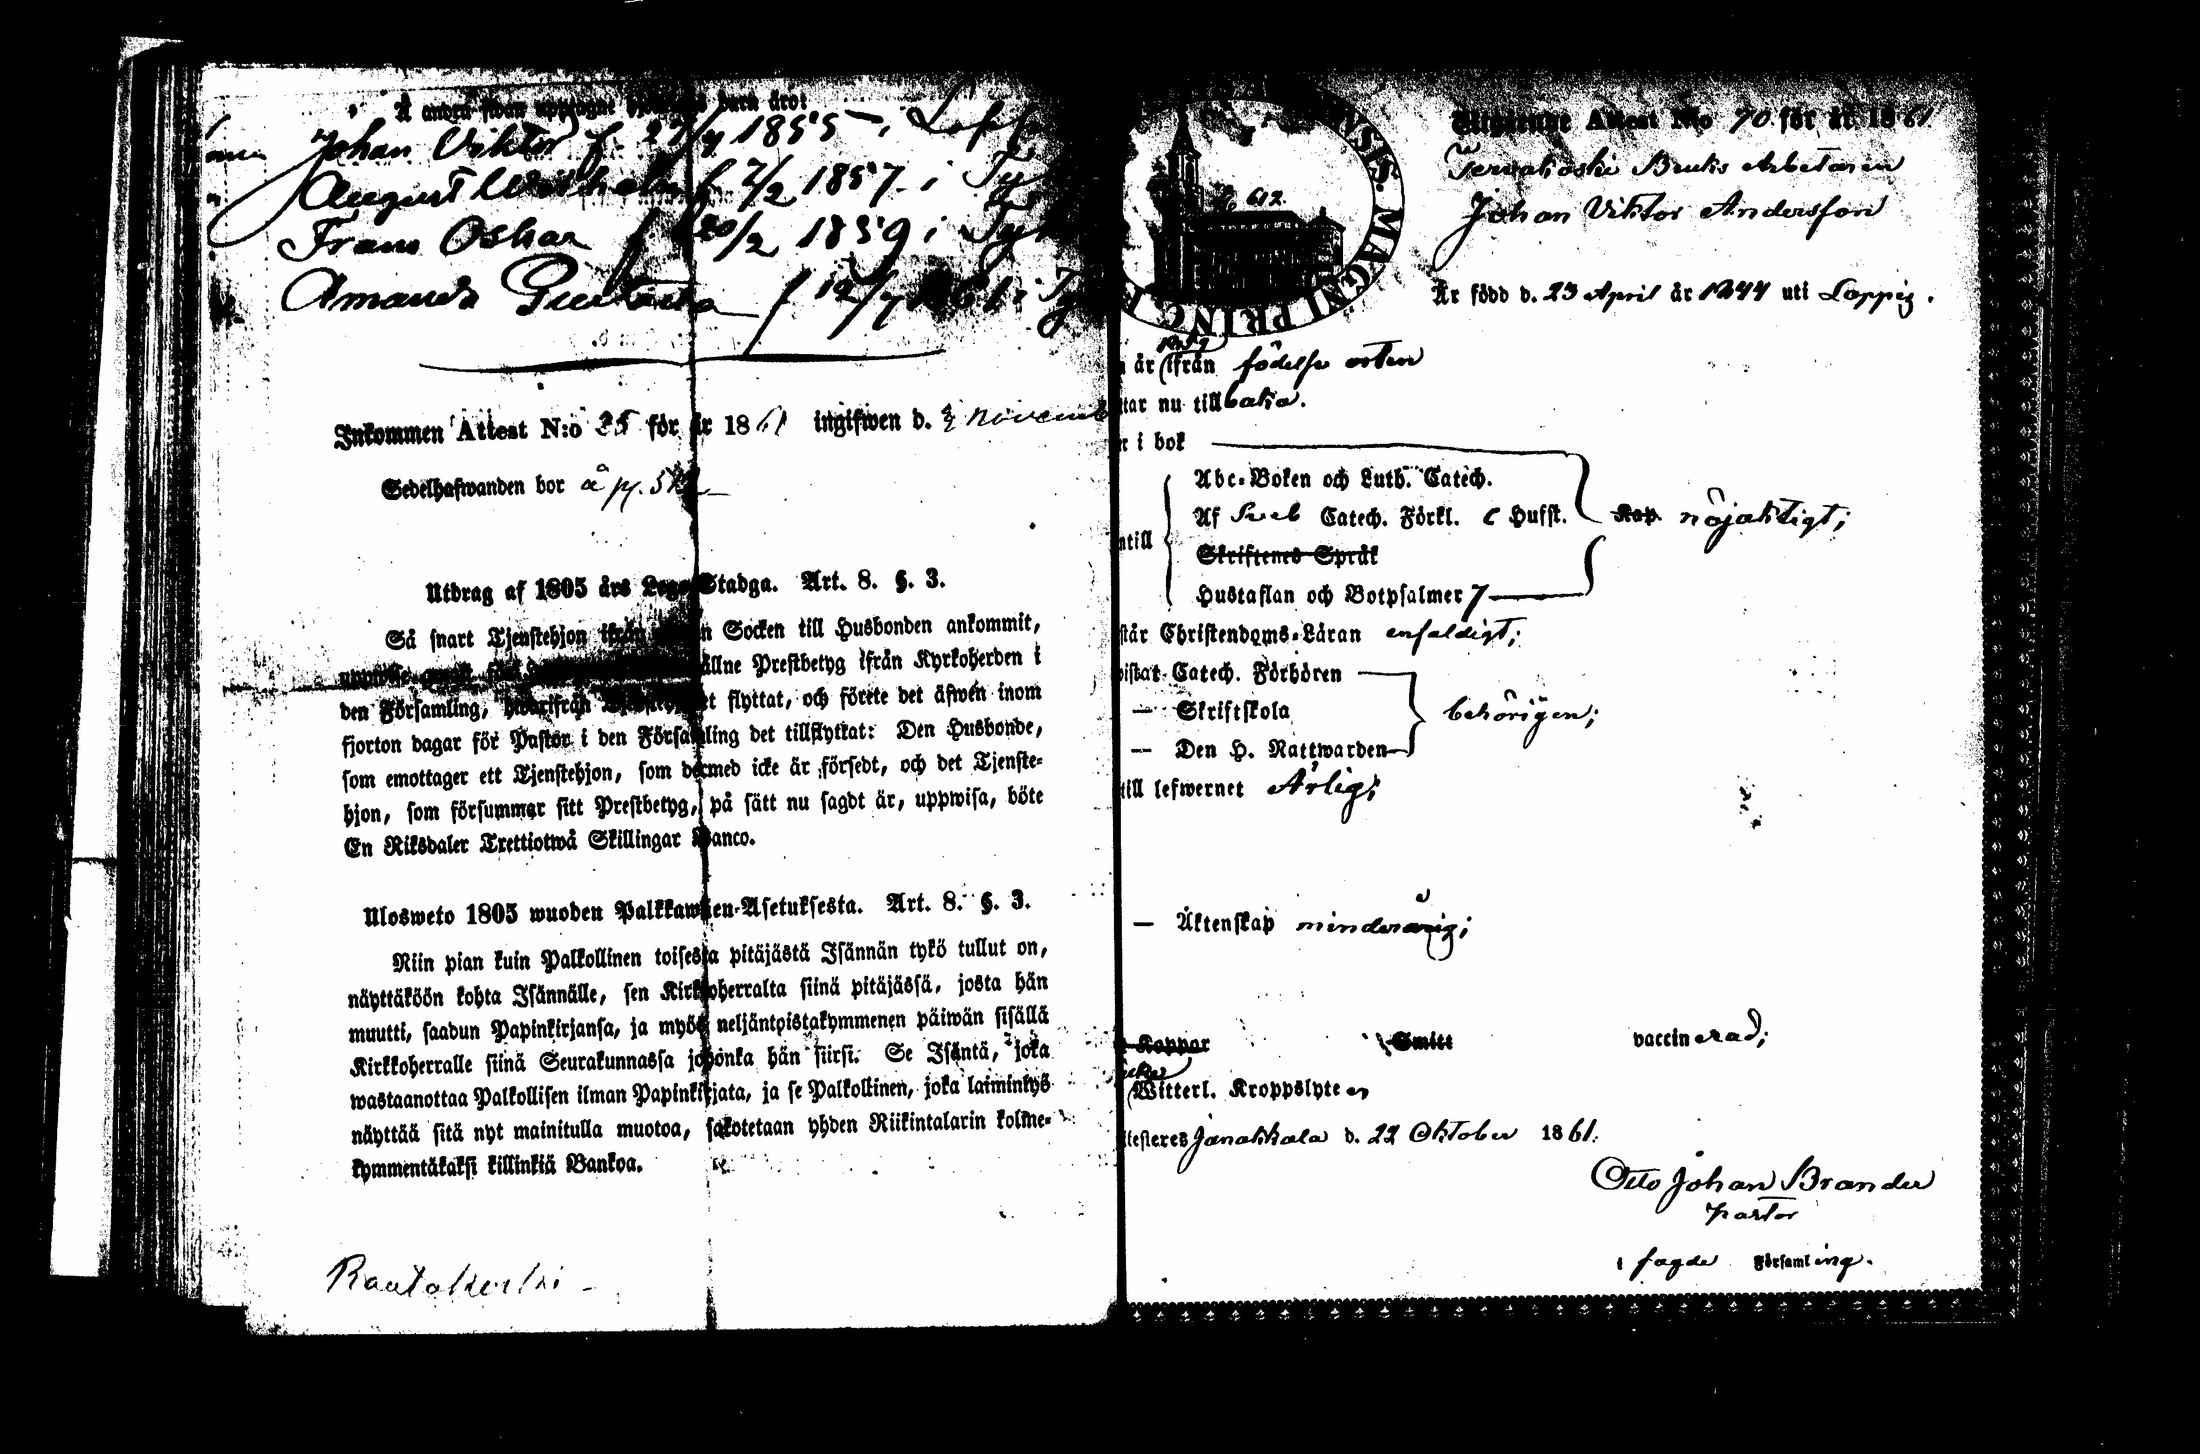 Å andra sidan upptagne barn äro:
Johan Viktor f. 27/4 1855 i Lopp
August Wilhelm f 2/2 1857 i Ty
Frans Oskar f 20/2 1859 i Ty
Amanda Gustava f 12/7 1861 i Ty
Inkommen Attest N:o 35 för år 1861 ingifwen d. novemb
Sedelhafwanden bor å p.
Utdrag af 1805 års Lego-Stadga. Art. 8. §. 3.
Så snart Tjenstehjon ifrån n Socken till Husbonden ankommit,
ållne Prestbetyg ifrån Kyrkoherden i
den Församling, hwarifrån et flyttat, och förete det äfwen inom
fjorton dagar för Pastor i den Församling det tillflyttat: Den Husbonde,
som emottager ett Tjenstehjon, som dermed icke är försedt, och det Tjenste-
hjon, som försummar sitt Prestbetyg, på sätt nu sagdt är, uppwisa, böte
En Riksdaler Trettiotwå Skillingar Banco.
Ulosweto 1805 wuoden Palkkawäen-Asetuksesta. Art. 8. §. 3.
Niin pian kuin Palkollinen toisesta pitäjästä Isännän tykö tullut on,
näyttäköön kohta Isännälle, sen Kirkkoherralta siinä pitäjässä, josta hän
muutti, saadun Papinkirjansa, ja myös neljäntoistakymmenen päiwän sisällä
Kirkkoherralle siinä Seurakunnassa johonka hän siirsi. Se Isäntä, joka
wastaanottaa Palkollisen ilman Papinkirjata, ja se Palkollinen, joka laiminlyö
näyttää sitä nyt mainitulla muotoa, sakotetaan yhden Riikintalarin kolme-
kymmentäkaksi killinkiä Bankoa.
MAGNI PRINC
No 612
Utgående Attest N:o 70 för år 1861
Tervakoski Bruks Arbetaren
Johan Viktor Andersson
Är född d. 23 April år 1844 uti Loppis.
är 1859 ifrån födelse orten
tar nu tillbaka.
i bok
Abc-Boken och Luth. Catech.
Af Sveb Catech. Förkl. Husst. Kap. nöjaktigt;
ntill
Skriftenes Språk
Hustaflan och Botpsalmer 7
står Christendoms-Läran enfaldigt;
vistat Catech. Förhören
— Skriftskola behörigen;
— Den H. Nattwarden
till lefwernet Ärlig;
— Äktenskap minderårig;
Koppor Smitt vaccinerad;
Witterl. Kroppslyten
ttesteres Janakkala d. 22 Oktober 1861.
Otto Johan Brander
Pastor
i sagde Församling.